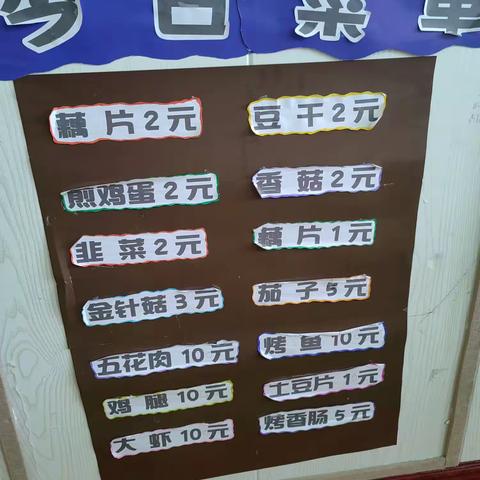 今日菜单
藕片2元
豆干2元
煎鸡蛋2元
香菇2元
韭菜2元
藕片1元
金针菇3元
茄子5元
五花肉10元
烤鱼10元
鸡腿10元
土豆片1元
大虾10元
烤香肠5元